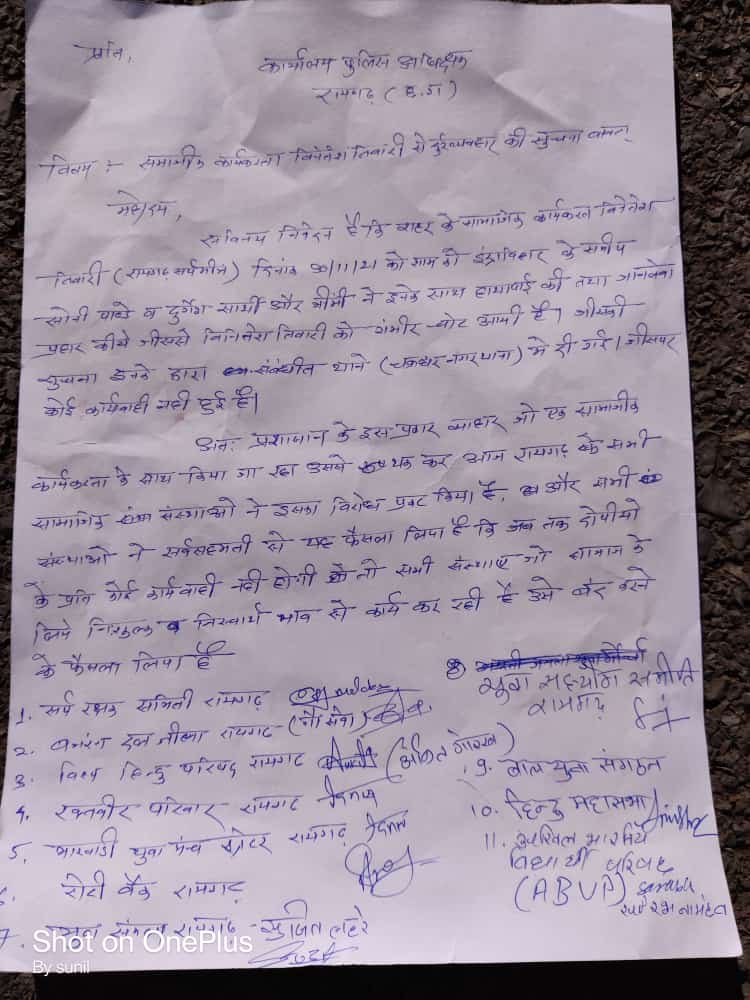 प्रति,
कार्यालय पुलिस अधिक्षक
रायगढ़ (छ.ग)
विषय :- समाजीक कार्यकरता विनितेश तिवारी से दुर्व्यवहार की सुचना बाबत्
महोदय,
सविनय निवेदन है कि शहर के सामाजिक कार्यकरता विनितेश
तिवारी (रायगढ़ सर्पमीत्र) दिनांक 30/11/21 को शाम को इंद्राविहार के समीप
सोनी पाण्डे व दुर्गेश सार्मा और भीमी ने इनके साथ हाथापाई की तथा जानलेवा
प्रहार कीये जीससे विनितेश तिवारी को गंभीर चोट आयी है। जीसकी
सुचना इनके द्वारा संबंधीत थाने (चक्रधर नगर थाना) मे दी गई। जीसपर
कोई कार्यवाही नही हुई है।
अतः प्रशासन के इस प्रकार व्यवहार जो एक सामाजीक
कार्यकरता के साथ किया जा रहा उससे कर आज रायगढ़ के सभी
सामाजिक संस्थाओ ने इसका विरोध प्रकट किया है, और सभी
संस्थाओ ने सर्वसहमती से यह फैसला लिया है कि जब तक दोषीयो
के प्रति कोई कार्यवाही नही होगी तो सभी संस्थाए जो समाज के
लिये निःशुल्क व निस्वार्थ भाव से कार्य कर रही है उसे बंद करने
के फैसला लिया है
1. सर्प रक्षक समिती रायगढ़
2. बजरंग दल जीला रायगढ़ - (गौ सेवा)
3. विश्व हिन्दु परिषद रायगढ़ (अंकित गोरख)
4. रक्तवीर परिवार रायगढ़
5. मारवाड़ी युवा मंच ग्रेटर रायगढ़
6. रोटी बैंक रायगढ़
7. संकल्प रायगढ़ - सुजित लहरे
8) युवा सहयोग समीति
रायगढ़
9. बाल युवा संगठन
10. हिन्दु महासभा
11. अखिल भारतिय
विद्यार्थी परिषद
(ABVP) Saurabh
Shot on OnePlus
By sunil